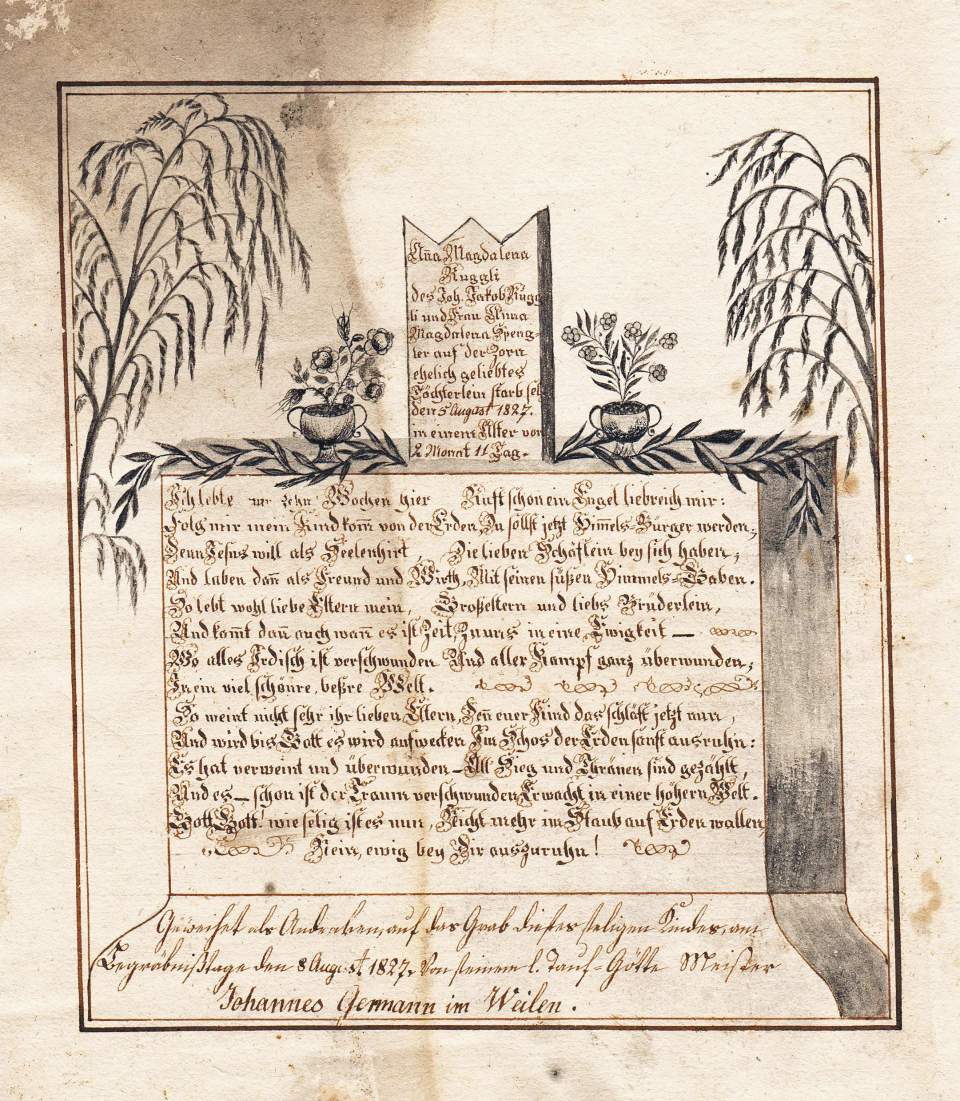 Aña Magdalena
Ruggli
des Joh. Jakob Rugg
li und Frau Anna
Magdalena Speng-
ler auf der Zorn
ehelich geliebtes
Töchterlein starb sel
den 5 August 1827.
in einem Alter von
2 Monat 11 Tag.
Ich lebte nur zehn Wochen hier Ruft schon ein Engel liebreich mir:
Folg mir mein Kind kom̄ von der Erden, Du sollst jetzt Him̄els-Bürger werden;
Denn Jesus will als Seelenhirt, Die lieben Schäflein bey sich haben;
Und laben dan̄ als Freund und Wirth, Mit seinen süßen Himmels-Gaben.
So lebt wohl liebe Eltern mein, Großeltern und liebs Brüderlein,
Und kom̄t dan̄ auch wan̄ es ist Zeit, Zu uns in eine Ewigkeit —
Wo alles Irdisch ist verschwunden Und aller Kampf ganz überwunden;
In ein viel schönre, beßre Welt.
So weint nicht sehr ihr lieben Eltern, Den̄ euer Kind das schläft jetzt nun,
Und wird bis Gott es wird aufwecken Im Schos der Erden sanft ausruhn:
Es hat verweint und überwunden — All Sieg und Thränen sind gezählt,
Und es — schon ist der Traum verschwunden, Erwacht in einer höhern Welt.
Gott, Gott! wie selig ist es nun, Nicht mehr im Staub auf Erden wallen,
Nein, ewig bey Dir auszuruhn!
Geweihet als Andenken, auf das Grab dieses seligen Kindes, am
Begräbnißtage den 8 August 1827. Von seinem l. Tauf-Götte Meister
Johannes Germann im Weilen.